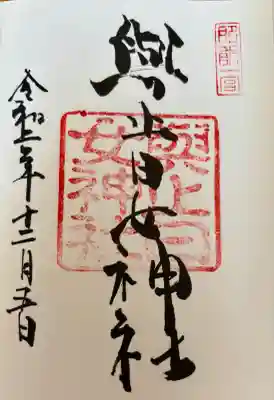 肥前一宮
與止日女神社
與止日女神社
令和二年十二月五日